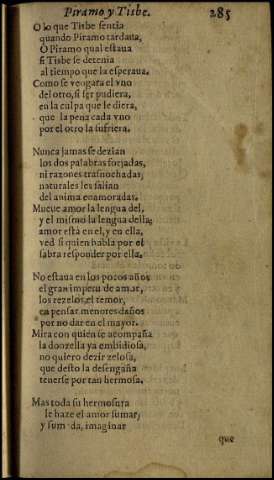 Piramo y Tisbe. 285
O lo que Tisbe sentia
quando Piramo tardaua,
O Piramo qual estaua
si Tisbe se detenia
al tiempo que la esperaua.
Como se vengara el vno
del otro, si ser pudiera,
en la culpa que le diera,
que la pena cada vno
por el otro la sufriera.
Nunca jamas se dezian
los dos palabras forjadas,
ni razones trasnochadas,
naturales les salian
del anima enamoradas.
Mueue amor la lengua del,
y el mismo la lengua della,
amor està en el, y en ella,
ved si quien habla por el
sabra responder por ella.
No estaua en los pocos años
el gran impetu de amor,
los rezelos, el temor,
en pensar menores daños
por no dar en el mayor.
Mira con quien se acompaña
la donzella ya embidiosa,
no quiero dezir zelosa,
que desto la desengaña
tenerse por tan hermosa.
Mas toda su hermosura
le haze el amor sumar,
y sum da, imaginar
que